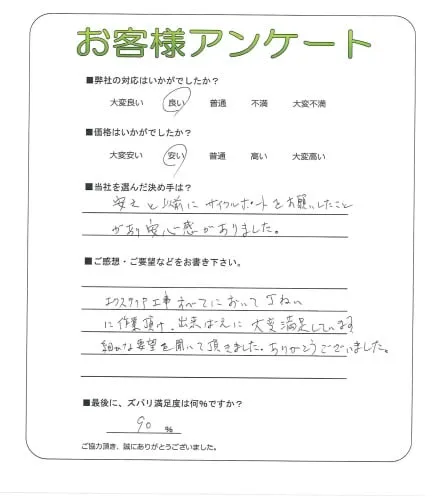 お客様アンケート
■弊社の対応はいかがでしたか?
大変良い 良い 普通 不満 大変不満
■価格はいかがでしたか?
大変安い 安い 普通 高い 大変高い
■当社を選んだ決め手は?
安さと以前にサイクルポートをお願いしたこと
があり安心感がありました。
■ご感想・ご要望などをお書き下さい。
エクステリア工事すべてにおいて丁ねい
に作業頂け、出来ばえに大変満足しています
細かな要望を聞いて頂きました。ありがとうございました。
■最後に、ズバリ満足度は何%ですか?
90 %
ご協力頂き、誠にありがとうございました。